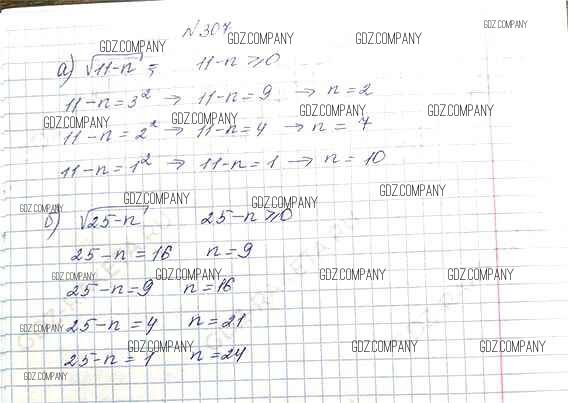 № 307
GDZ.COMPANY
GDZ.COMPANY GDZ.COMPANY GDZ.COMPANY GDZ.COMPANY
а) √11-n = 11-n ≥ 0
11-n=3² → 11-n=9 → n=2
GDZ.COMPANY GDZ.COMPANY GDZ.COMPANY GDZ.COMPANY
11-n=2² → 11-n=4 → n=7
11-n=1² → 11-n=1 → n=10
GDZ.COMPANY GDZ.COMPANY GDZ.COMPANY GDZ.COMPANY
б) √25-n 25-n ≥ 0
25-n=16 n=9
GDZ.COMPANY GDZ.COMPANY GDZ.COMPANY GDZ.COMPANY
25-n=9 n=16
25-n=4 n=21
GDZ.COMPANY
25-n=1 n=24
GDZ.COMPANY GDZ.COMPANY GDZ.COMPANY
GDZ.COMPANY